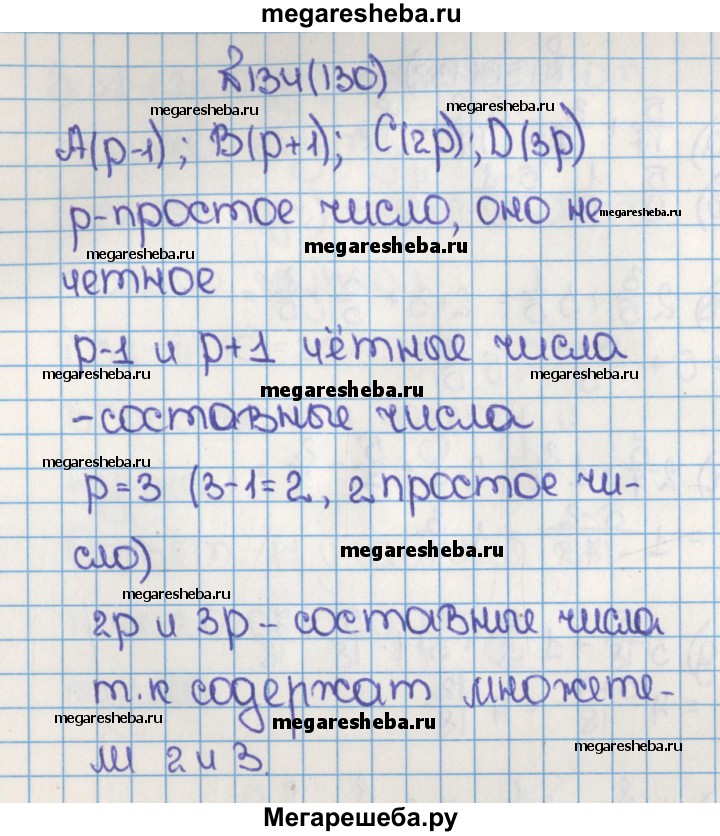 megaresheba.ru
№134(130)
megaresheba.ru megaresheba.ru
A(p-1); B(p+1); C(2p); D(3p)
p-простое число, оно не
megaresheba.ru
megaresheba.ru megaresheba.ru
четное
p-1 и p+1 чётные числа
megaresheba.ru megaresheba.ru megaresheba.ru
-составные числа
megaresheba.ru
p=3 (3-1=2, 2 простое чи-
сло) megaresheba.ru
megaresheba.ru
2p и 3p - составные числа
т.к содержат множете-
megaresheba.ru megaresheba.ru
megaresheba.ru
ли 2 и 3.
Мегарешеба.ру